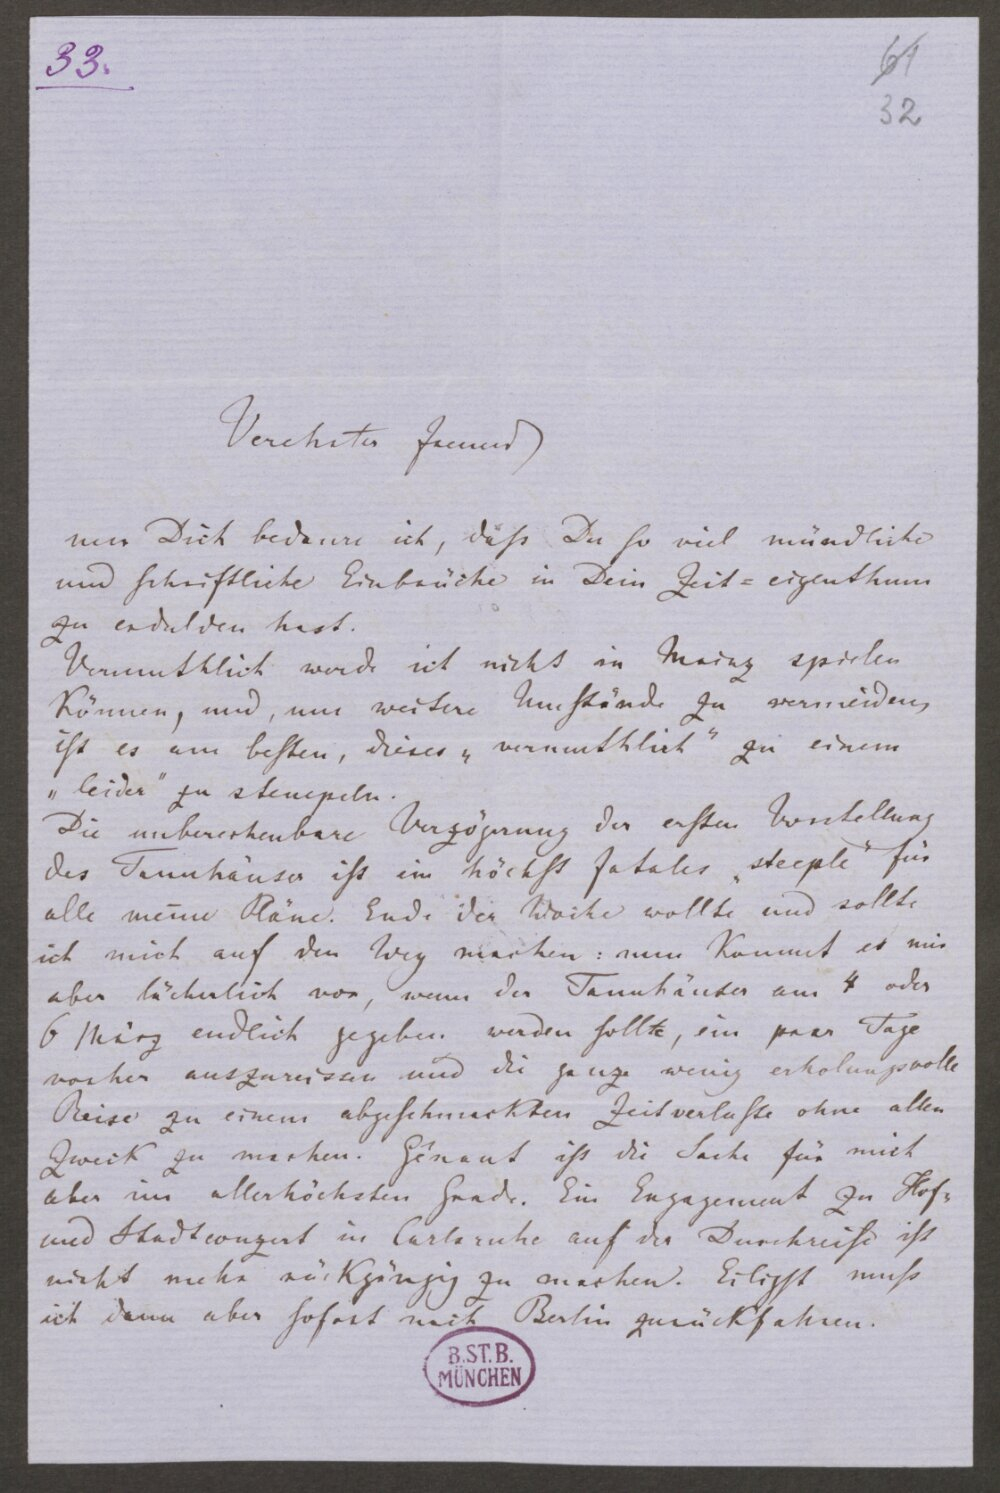 33.
61
32
Verehrter Freund
nur Dich bedaure ich, daß Du so viel mündliche
und schriftliche Einbrüche in Dein Zeit=eigenthum
zu erdulden hast.
Vermuthlich werde ich nicht in Mainz spielen
können, und, um weitere Umstände zu vermeiden,
ist es am besten, dieses „vermuthlich“ zu einem
„leider“ zu stempeln.
Die unberechenbare Verzögerung der ersten Vorstellung
des Tannhäuser ist ein höchst fatales „steeple“ für
alle meine Pläne. Ende der Woche wollte und sollte
ich mich auf den Weg machen: nun kommt es mir
aber lächerlich vor, wenn der Tannhäuser am 4 oder
6 März endlich gegeben werden sollte, ein paar Tage
vorher auszureissen und die ganze wenig erholungsvolle
Reise zu einem abgeschmackten Zeitverluste ohne allen
Zweck zu machen. Gênant ist die Sache für mich
aber im allerhöchsten Grade. Ein Engagement zu Hof-
und Stadtconzert in Carlsruhe auf der Durchreise ist
nicht mehr rückgängig zu machen. Eiligst muß
ich dann aber sofort nach Berlin zurückfahren.
B.ST.B.
MÜNCHEN